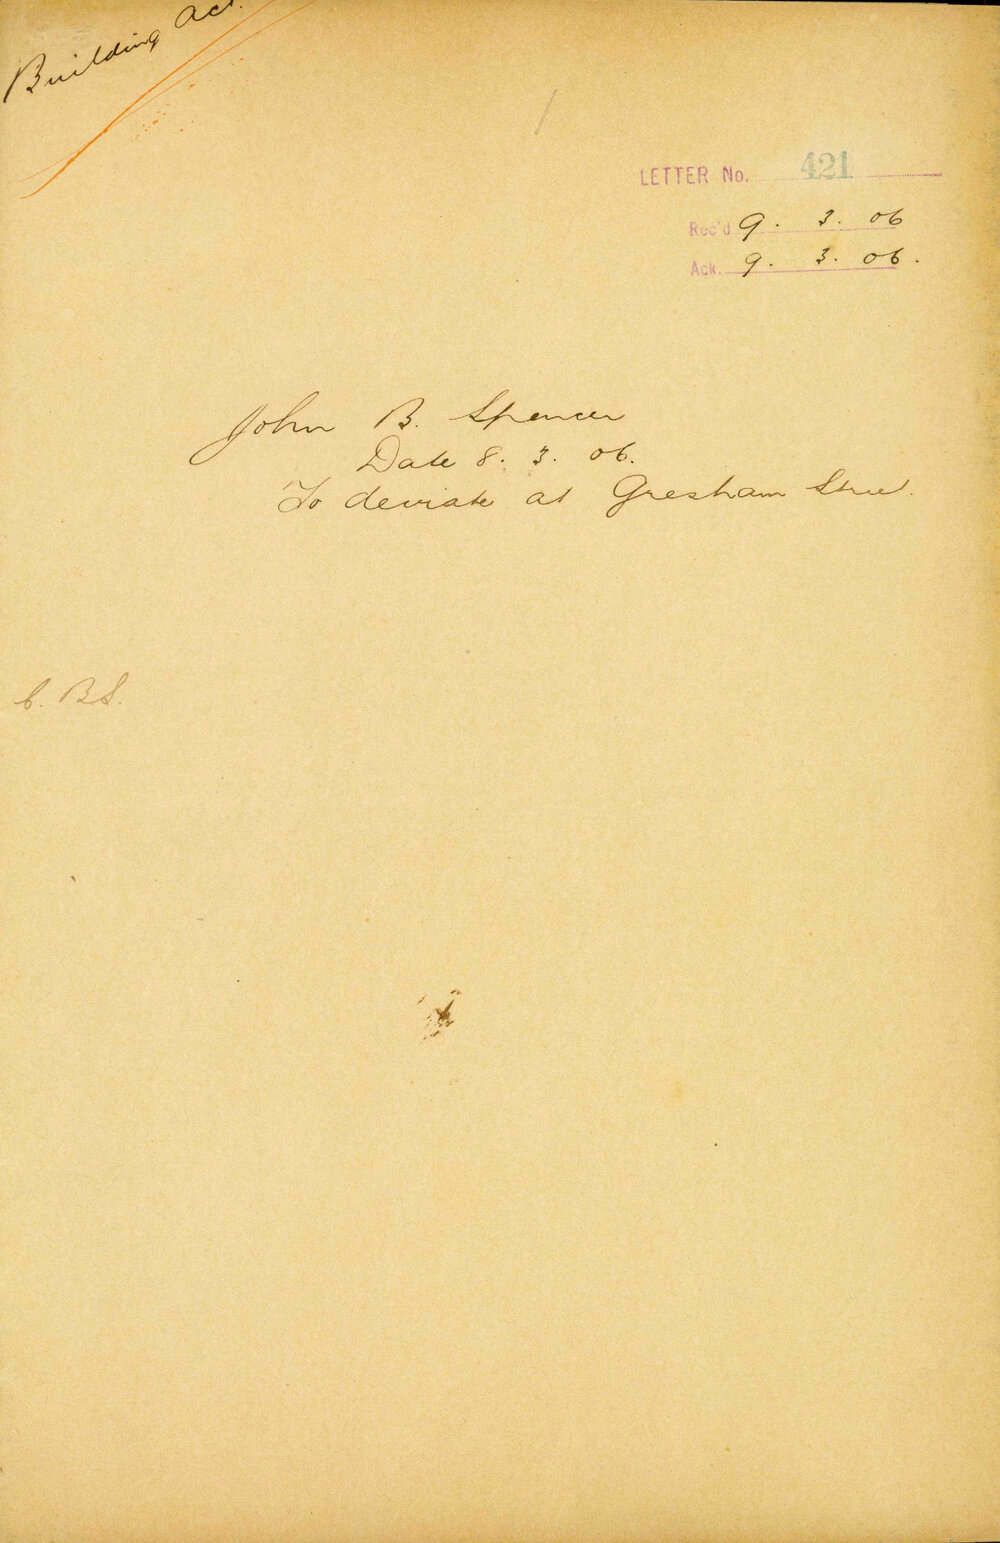 Building Act.
LETTER No. 421
Rec'd 9. 3. 06
Ack. 9. 3. 06.
John B. Spencer
Date 8. 3. 06.
To deviate at Gresham Street.
C. B.S.